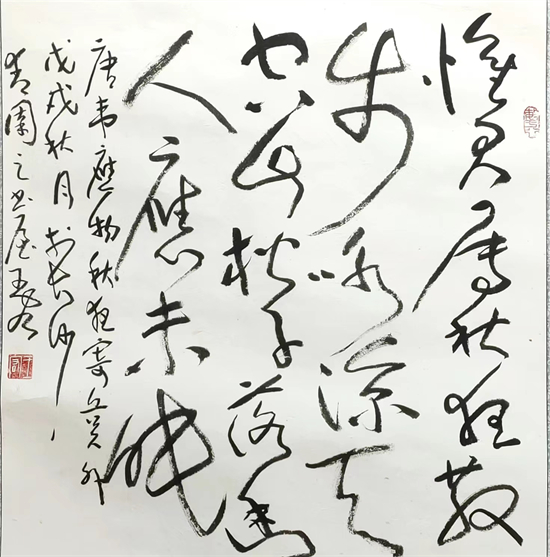 懷君屬秋夜散
步詠涼天
空山松子落幽
人應未眠
唐韋應物秋夜寄丘員外
戊戌秋月於長沙
青園之書屋